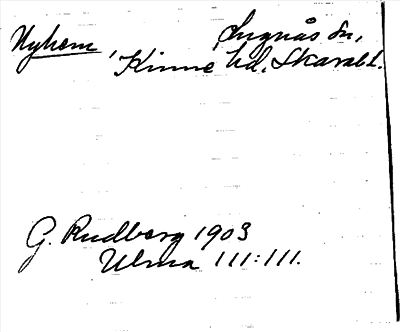 Nyhem, Lugnås sn,
Kinne hd, Skarab.l.
G. Rudberg 1903
Ulma 111:111.